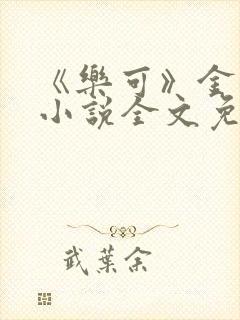 《樂可》金
小說全文免
武葉余